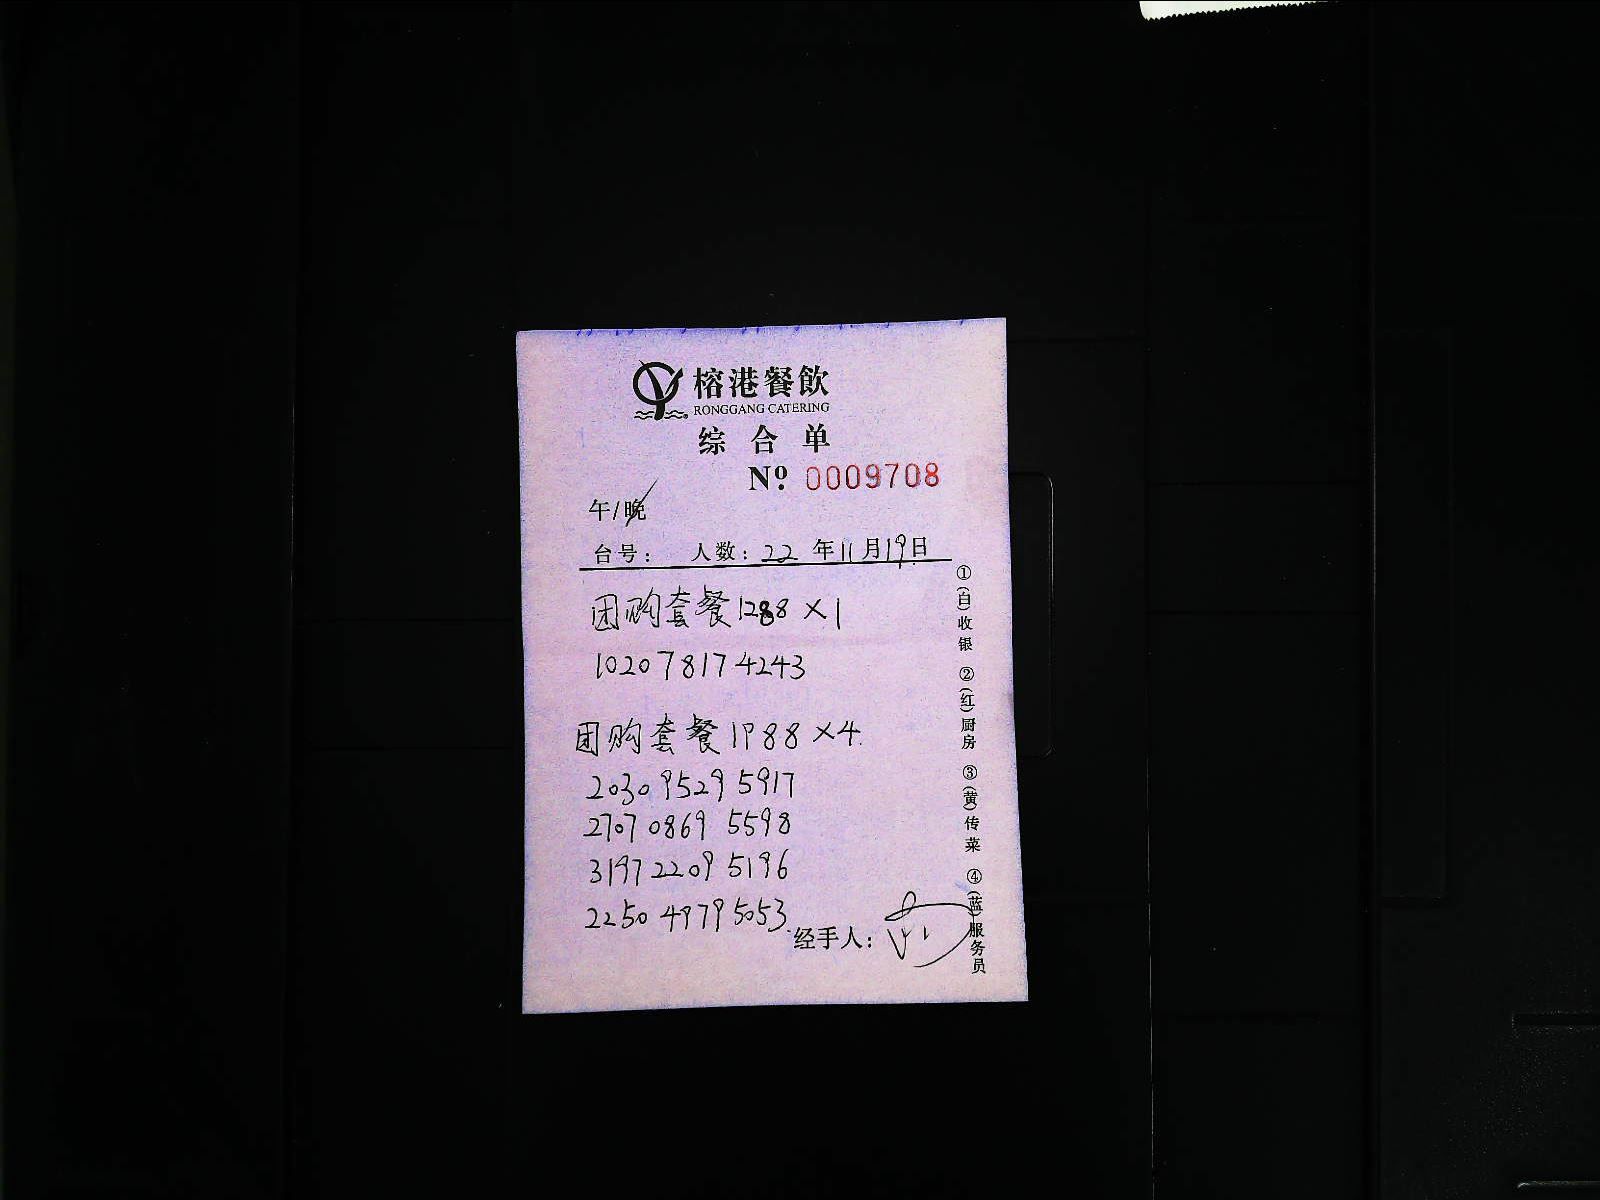 榕港餐飲
RONGGANG CATERING
综合单
Nº: 0009708
午/晚
台号： 人数：22 年11月19日
团购套餐1288×1
1020 7817 4243
团购套餐1988×4
2030 9529 5917
2707 0869 5598
3197 2209 5196
2250 4979 5053
经手人：
①(白)收银 ②(红)厨房 ③(黄)传菜 ④(蓝)服务员